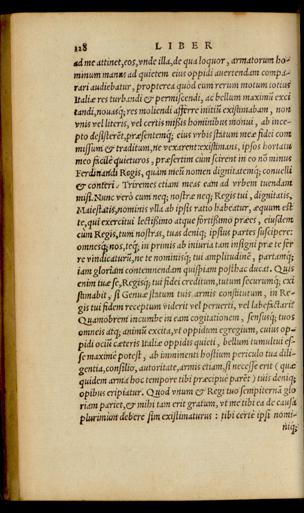 128 LIBER
ad me attinet, eos, unde illa, de qua loquor, armatorum ho-
minum manus ad quietem eius oppidi auertendam compa-
rari audiebatur, propterea quòd cum rerum motum totius
Italiæ res turbandi & permiscendi, ac bellum maximũ exci
tandi, nouasq; res moliendi afferre initiũ existimabam, non
vnis vel literis, vel certis missis hominibus monui, ab ince-
pto desisterẽt, præsentemq; eius vrbis statum meæ fidei com
missum & traditum, ne vexarent: existimans, ipsos hortatu
meo facilè quieturos, præsertim cùm scirent in eo nõ minus
Ferdinandi Regis, quàm mei nomen dignitatemq; conuelli
& conteri. Triremes etiam meas eam ad vrbem tuendam
misi. Nunc verò cum neq; nostræ neq; Regis tui, dignitatis,
Maiestatis, nominis vlla ab ipsis ratio habeatur, æquum est
te, qui exercitui lectissimo atque fortissimo præes, eiusdem
cùm Regis, tum nostras, tuas deniq; ipsius partes suscipere:
omnesq; nos, teq; in primis ab iniuria tam insigni præ te fer
re vindicaturũ, ne te nominisq; tui amplitudinẽ, partamq;
iam gloriam contemnendam quispiam posthac ducat. Quis
enim tuæ se, Regisq; tui fidei creditum, tutum securumq; exi
stimabit, si Genuæ statum tuis armis constitutum, in Re-
gis tui fidem receptum viderit vel peruerti, vel labefactari?
Quamobrem incumbe in eam cogitationem, sensusq; tuos
omneis atq; animũ excita, vt oppidum egregium, cuius op-
pidi ociũ cæteris Italiæ oppidis quieti, bellum tumultui es-
se maximè potest, ab imminenti hostium periculo tua dili-
gentia, consilio, autoritate, armis etiam, si necesse erit (quæ
quidem arma hoc tempore tibi præcipuè parẽt) tuis deniq;
opibus eripiatur. Quod vnum & Regi tuo sempiternã glo
riam pariet, & mihi tam erit gratum, vt me tibi ea de causa
plurimùm debere sim existimaturus: tibi certè ipsi nomi-
niq;